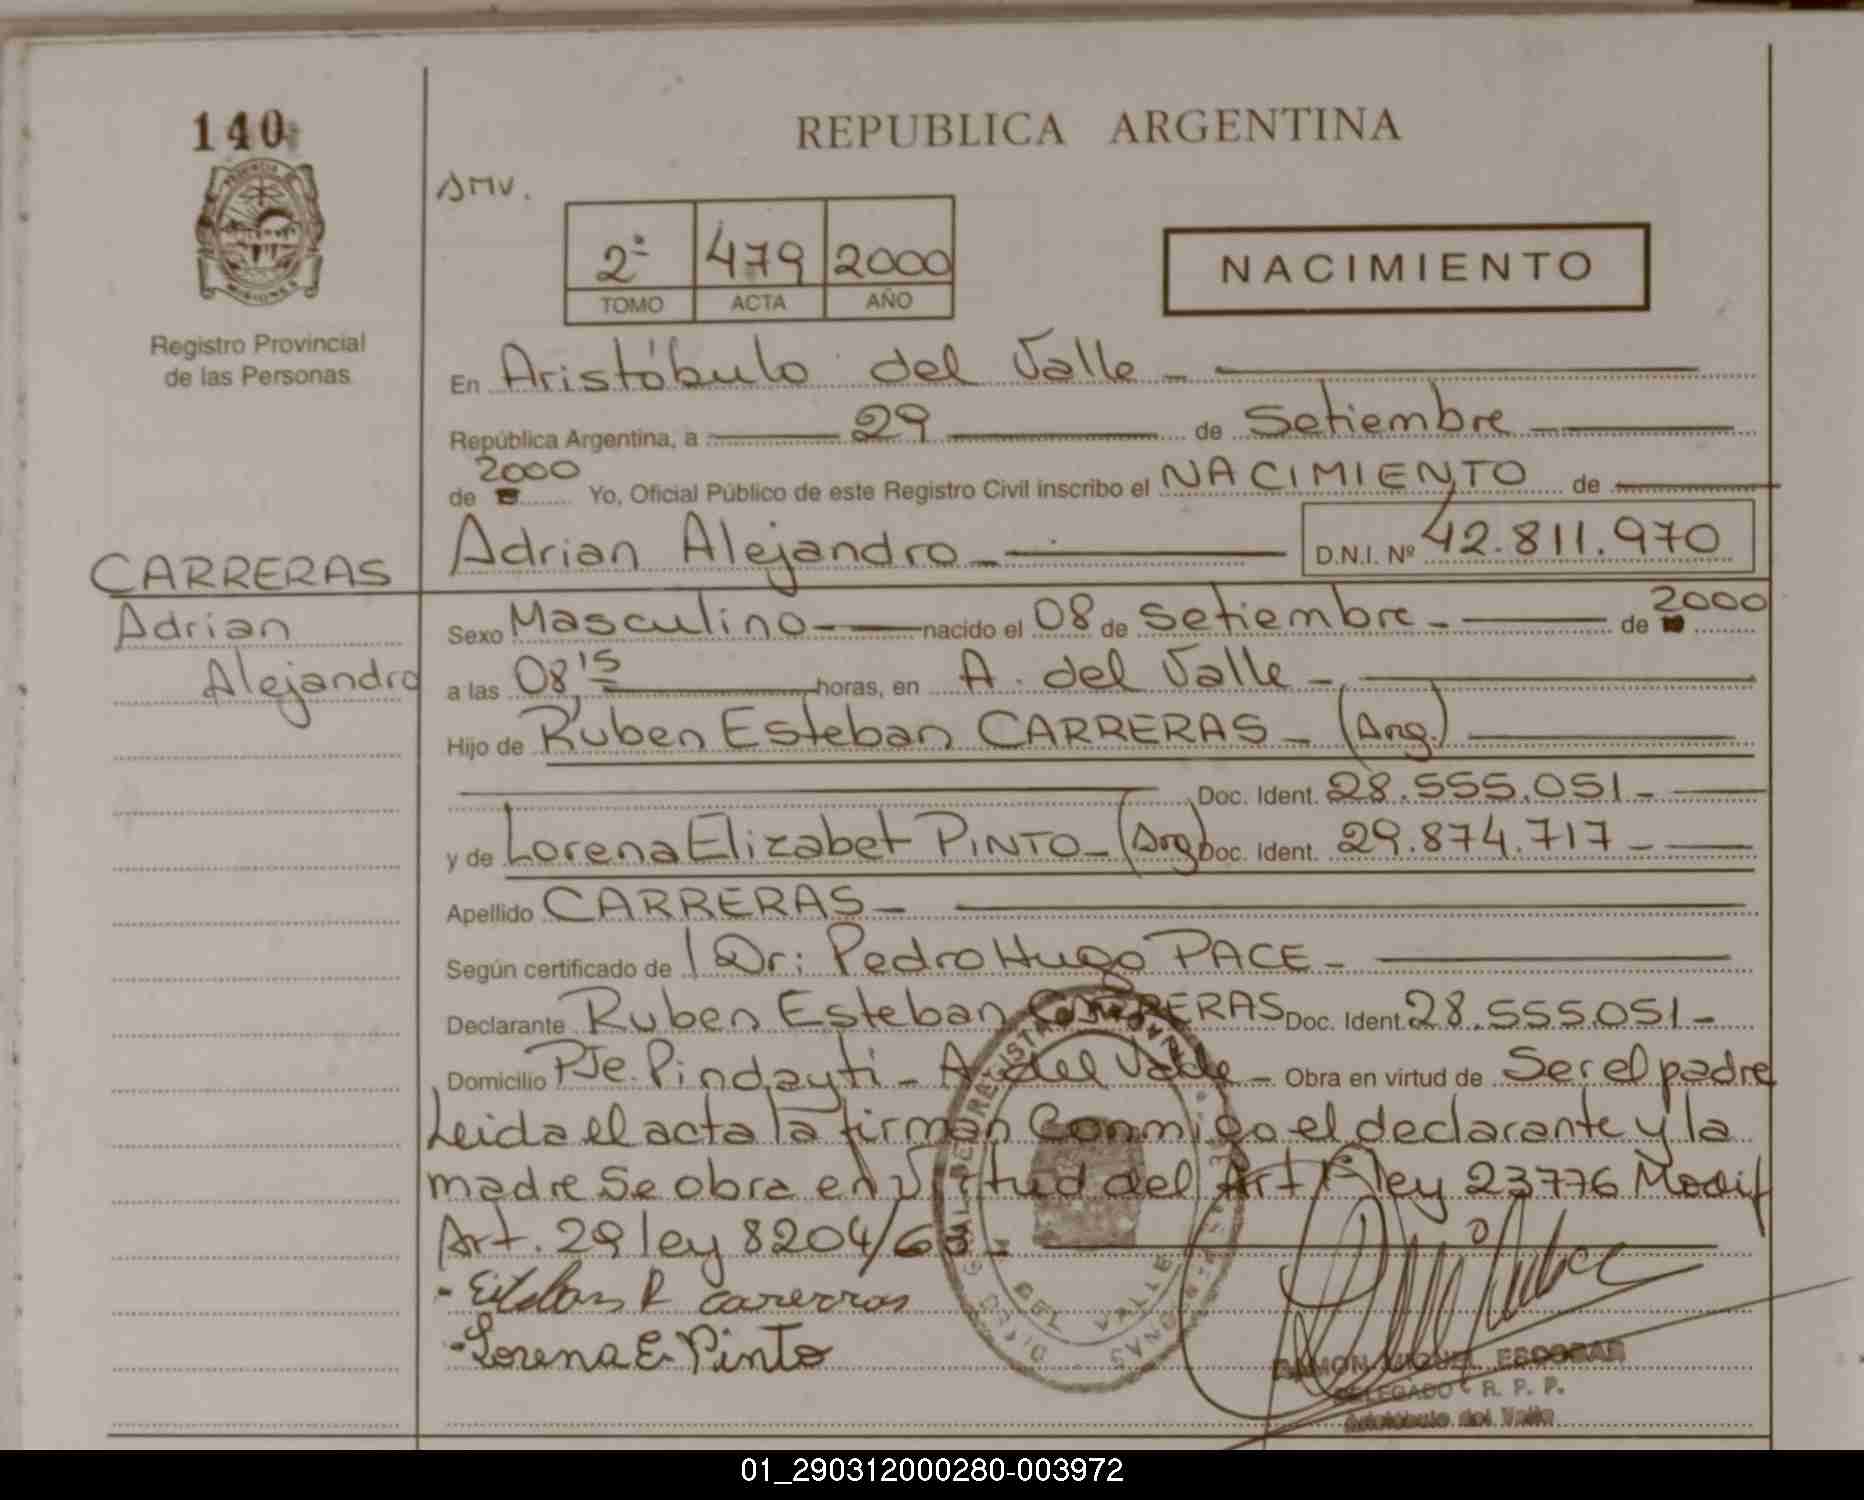 140
REPUBLICA ARGENTINA
SMV.
2º 479 2000
TOMO ACTA AÑO
NACIMIENTO
Registro Provincial
de las Personas
En Aristóbulo del Valle -
República Argentina, a 29 de Setiembre
de 2000 Yo, Oficial Público de este Registro Civil inscribo el NACIMIENTO de
Adrian Alejandro D.N.I. Nº 42.811.970
CARRERAS
Adrian
Alejandro
Sexo Masculino nacido el 08 de Setiembre - de 2000
a las 08,15 horas, en A. del Valle -
Hijo de Ruben Esteban CARRERAS - (Arg.)
Doc. Ident. 28.555.051 -
y de Lorena Elizabet PINTO - (Arg) Doc. Ident. 29.874.717 -
Apellido CARRERAS -
Según certificado de Dr: Pedro Hugo PACE -
Declarante Ruben Esteban CARRERAS Doc. Ident. 28.555.051 -
Domicilio PJe. Pindayti - A del Valle - Obra en virtud de Ser el padre
Leida el acta la firman Conmigo el declarante y la
madre Se obra en Virtud del Art 1º ley 23776 Modif
Art. 29 ley 8204/63 -
- Esteban R carerras
- Lorena E. Pinto
DEL VALLE
RAMON MIGUEL ESCOBAR
DELEGADO R. P. P.
Aristóbulo del Valle
01_290312000280-003972